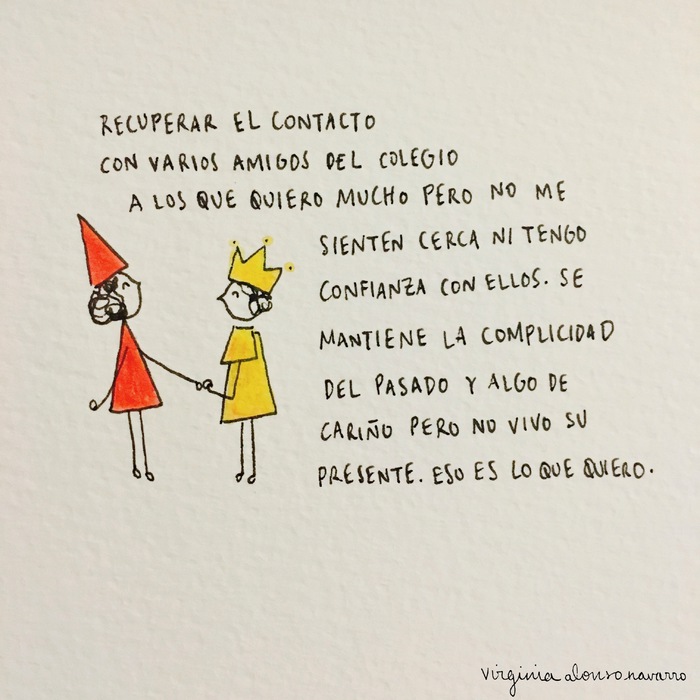 RECUPERAR EL CONTACTO
CON VARIOS AMIGOS DEL COLEGIO
A LOS QUE QUIERO MUCHO PERO NO ME
SIENTEN CERCA NI TENGO
CONFIANZA CON ELLOS. SE
MANTIENE LA COMPLICIDAD
DEL PASADO Y ALGO DE
CARIÑO PERO NO VIVO SU
PRESENTE. ESO ES LO QUE QUIERO.
virginia alonso navarro